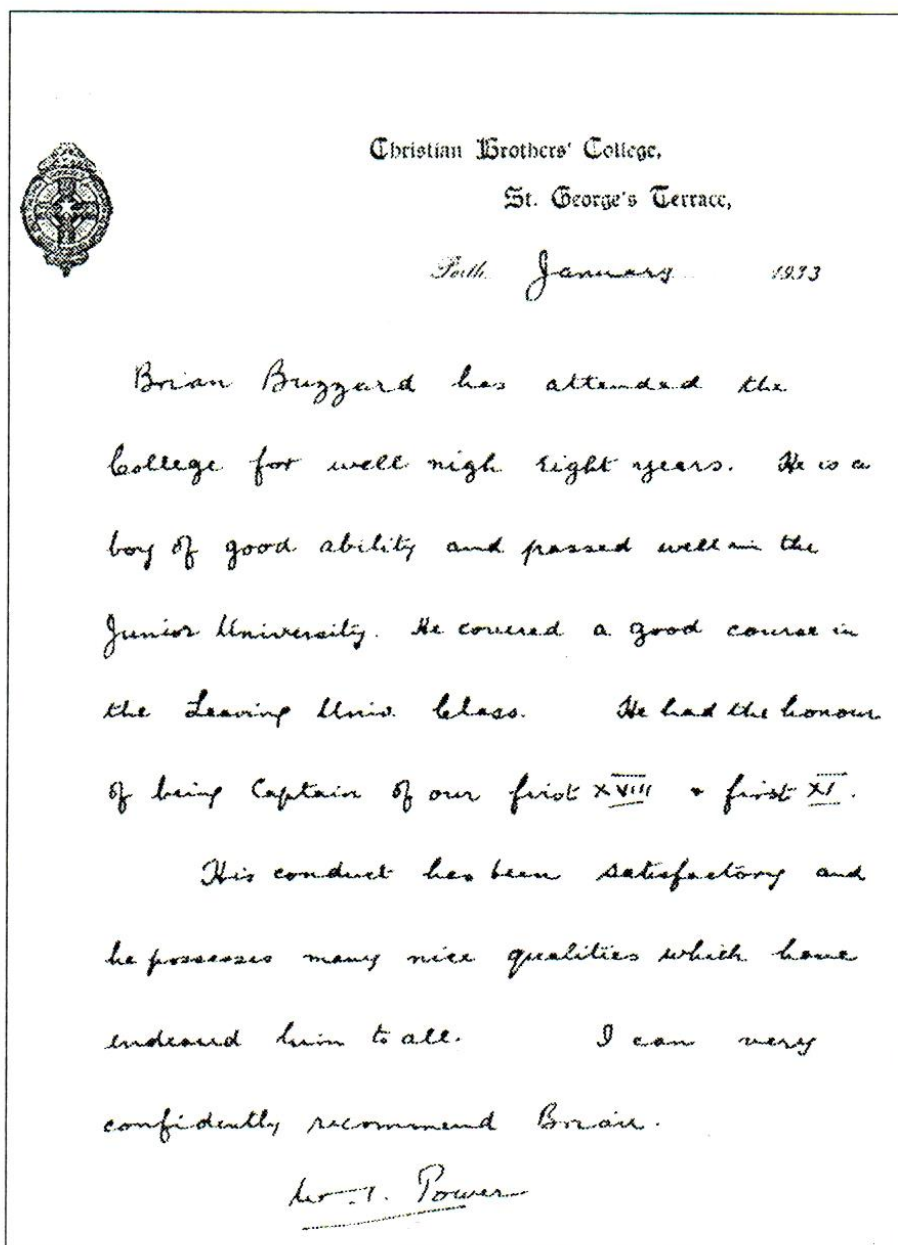 Christian Brothers' College,
St. George's Terrace,
Perth January 1933
Brian Buzzard has attended the
College for well nigh eight years. He is a
boy of good ability and passed well in the
Junior University. He covered a good course in
the Leaving Univ. Class. He had the honour
of being Captain of our first XVIII & first XI.
His conduct has been satisfactory and
he possesses many nice qualities which have
endeared him to all. I can very
confidently recommend Brian.
Power